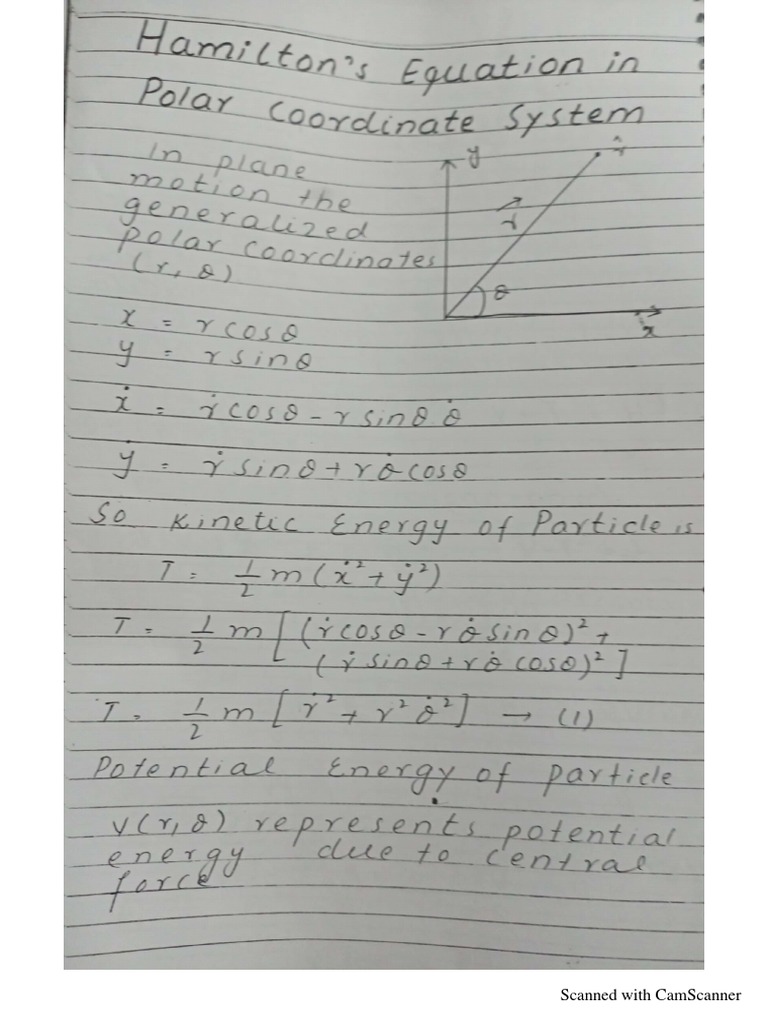 Hamilton's Equation in
Polar Coordinate System
In plane
motion the
generalized
polar coordinates
(r, θ)
y
r̂
r⃗
θ
x
x = r cosθ
y = r sinθ
ẋ = ṙ cosθ - r sinθ θ̇
ẏ = ṙ sinθ + r θ̇ cosθ
So Kinetic Energy of Particle is
T = 1/2 m (ẋ² + ẏ²)
T = 1/2 m [ (ṙ cosθ - r θ̇ sinθ)² +
(ṙ sinθ + r θ̇ cosθ)² ]
T = 1/2 m [ ṙ² + r² θ̇² ] → (1)
Potential Energy of particle
V(r, θ) represents potential
energy due to central
force
Scanned with CamScanner